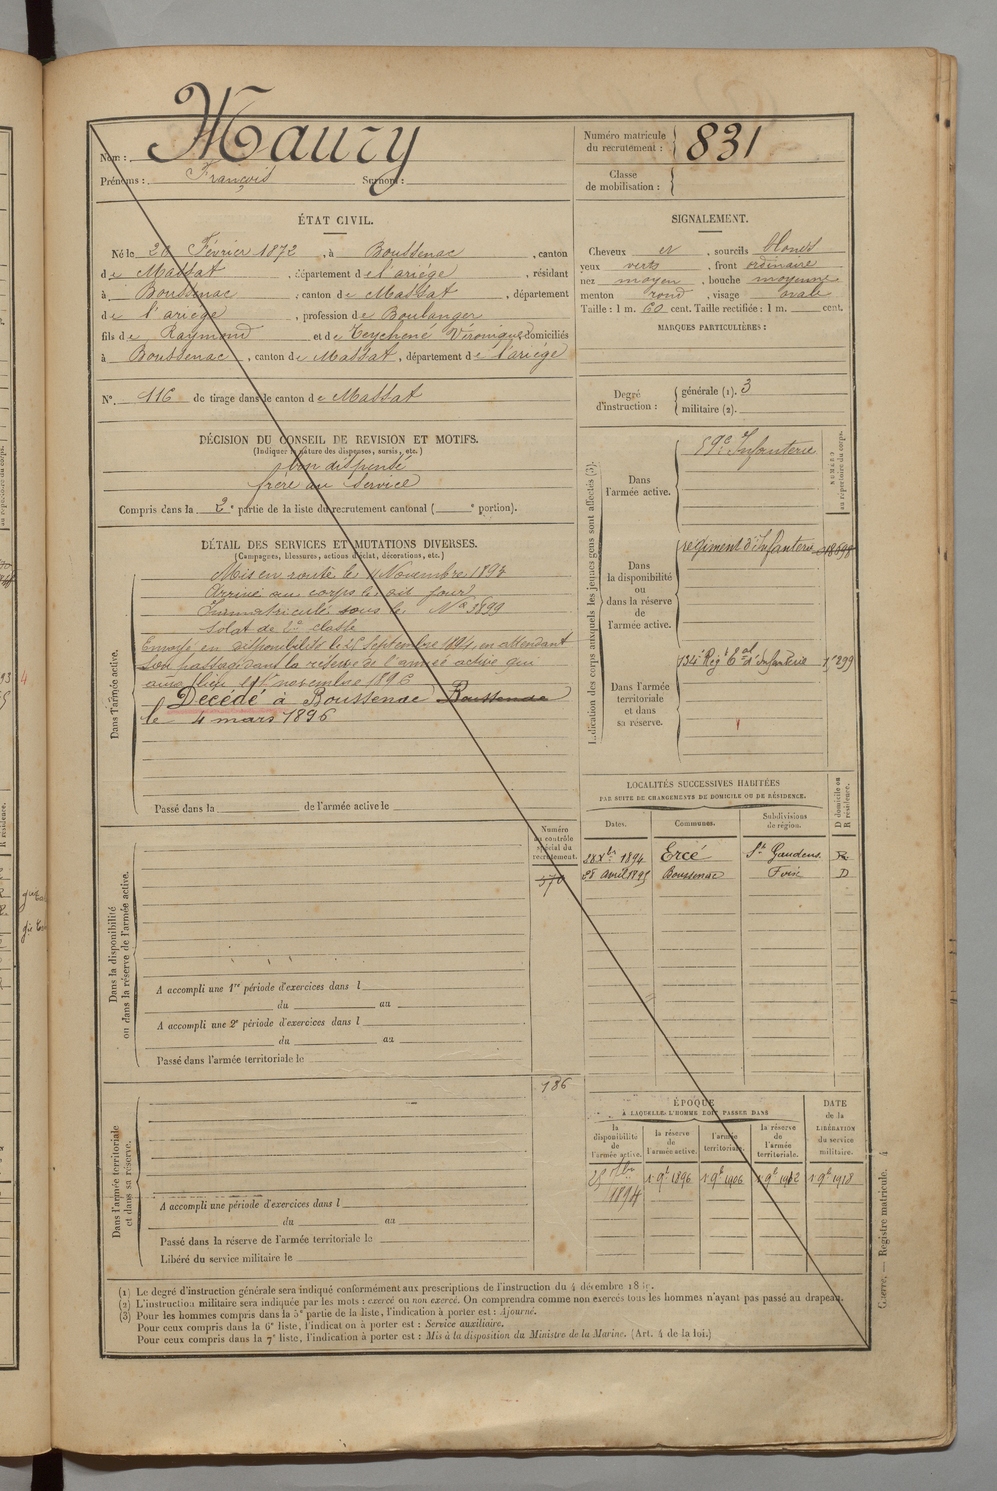 Nom : Maury
Prénoms : François Surnom :
Numéro matricule du recrutement : 831
Classe de mobilisation :
ÉTAT CIVIL.
Né le 20 Février 1872, à Boussenac, canton
de Massat, département de l'ariège, résidant
à Boussenac, canton de Massat, département
de l'ariège, profession de Boulanger
fils de Raymond et de Teychené Véronique domiciliés
à Boussenac, canton de Massat, département de l'ariège
N° 116 de tirage dans le canton de Massat
SIGNALEMENT.
Cheveux et, sourcils blonds
yeux verts, front ordinaire
nez moyen, bouche moyenne
menton rond, visage ovale
Taille : 1 m. 60 cent. Taille rectifiée : 1 m. cent.
MARQUES PARTICULIÈRES :
Degré d'instruction :
générale (1). 3
militaire (2).
DÉCISION DU CONSEIL DE REVISION ET MOTIFS.
(Indiquer la nature des dispenses, sursis, etc.)
bon dispensé
frère au service
Compris dans la 2e partie de la liste du recrutement cantonal ( e portion).
DÉTAIL DES SERVICES ET MUTATIONS DIVERSES.
(Campagnes, blessures, actions d'éclat, décorations, etc.)
Dans l'armée active.
Mis en route le 11 Novembre 1893
Arrivé au corps le dit jour
Immatriculé sous le N° 3899
Soldat de 2e classe
Envoyé en disponibilité le 25 Septembre 1894 en attendant
son passage dans la réserve de l'armée active qui
aura lieu le 1er novembre 1896
Décédé à Boussenac Boussenac
le 4 mars 1896
Passé dans la de l'armée active le
Indication des corps auxquels les jeunes gens sont affectés (3).
NUMÉRO au répertoire du corps.
Dans l'armée active.
59e Infanterie
Dans la disponibilité ou dans la réserve de l'armée active.
régiment d'Infanterie
Dans l'armée territoriale et dans sa réserve.
134e Régt Eal d'Infanterie
LOCALITÉS SUCCESSIVES HABITÉES
PAR SUITE DE CHANGEMENTS DE DOMICILE OU DE RÉSIDENCE.
D domicile ou R résidence.
Dates. Communes. Subdivisions de région.
28 Xbre 1894 Ercé St Gaudens R
28 avril 1895 Boussenac Foix D
Numéro au contrôle spécial du recrutement.
570
Dans la disponibilité ou dans la réserve de l'armée active.
A accompli une 1re période d'exercices dans l
du au
A accompli une 2e période d'exercices dans l
du au
Passé dans l'armée territoriale le
186
Dans l'armée territoriale et dans sa réserve.
A accompli une période d'exercices dans l
du au
Passé dans la réserve de l'armée territoriale le
Libéré du service militaire le
ÉPOQUE
À LAQUELLE L'HOMME DOIT PASSER DANS
la disponibilité de l'armée active.
la réserve de l'armée active.
l'armée territoriale.
la réserve de l'armée territoriale.
DATE de la LIBÉRATION du service militaire.
25 7bre 1894
1 9bre 1896
1 9bre 1906
1 9bre 1912
1 9bre 1918
(1) Le degré d'instruction générale sera indiqué conformément aux prescriptions de l'instruction du 4 décembre 18
(2) L'instruction militaire sera indiquée par les mots : exercé ou non exercé. On comprendra comme non exercés tous les hommes n'ayant pas passé au drapeau.
(3) Pour les hommes compris dans la 5e partie de la liste, l'indication à porter est : Ajourné.
Pour ceux compris dans la 6e liste, l'indication à porter est : Service auxiliaire.
Pour ceux compris dans la 7e liste, l'indication à porter est : Mis à la disposition du Ministre de la Marine. (Art. 4 de la loi.)
Guerre. — Registre matricule. 4